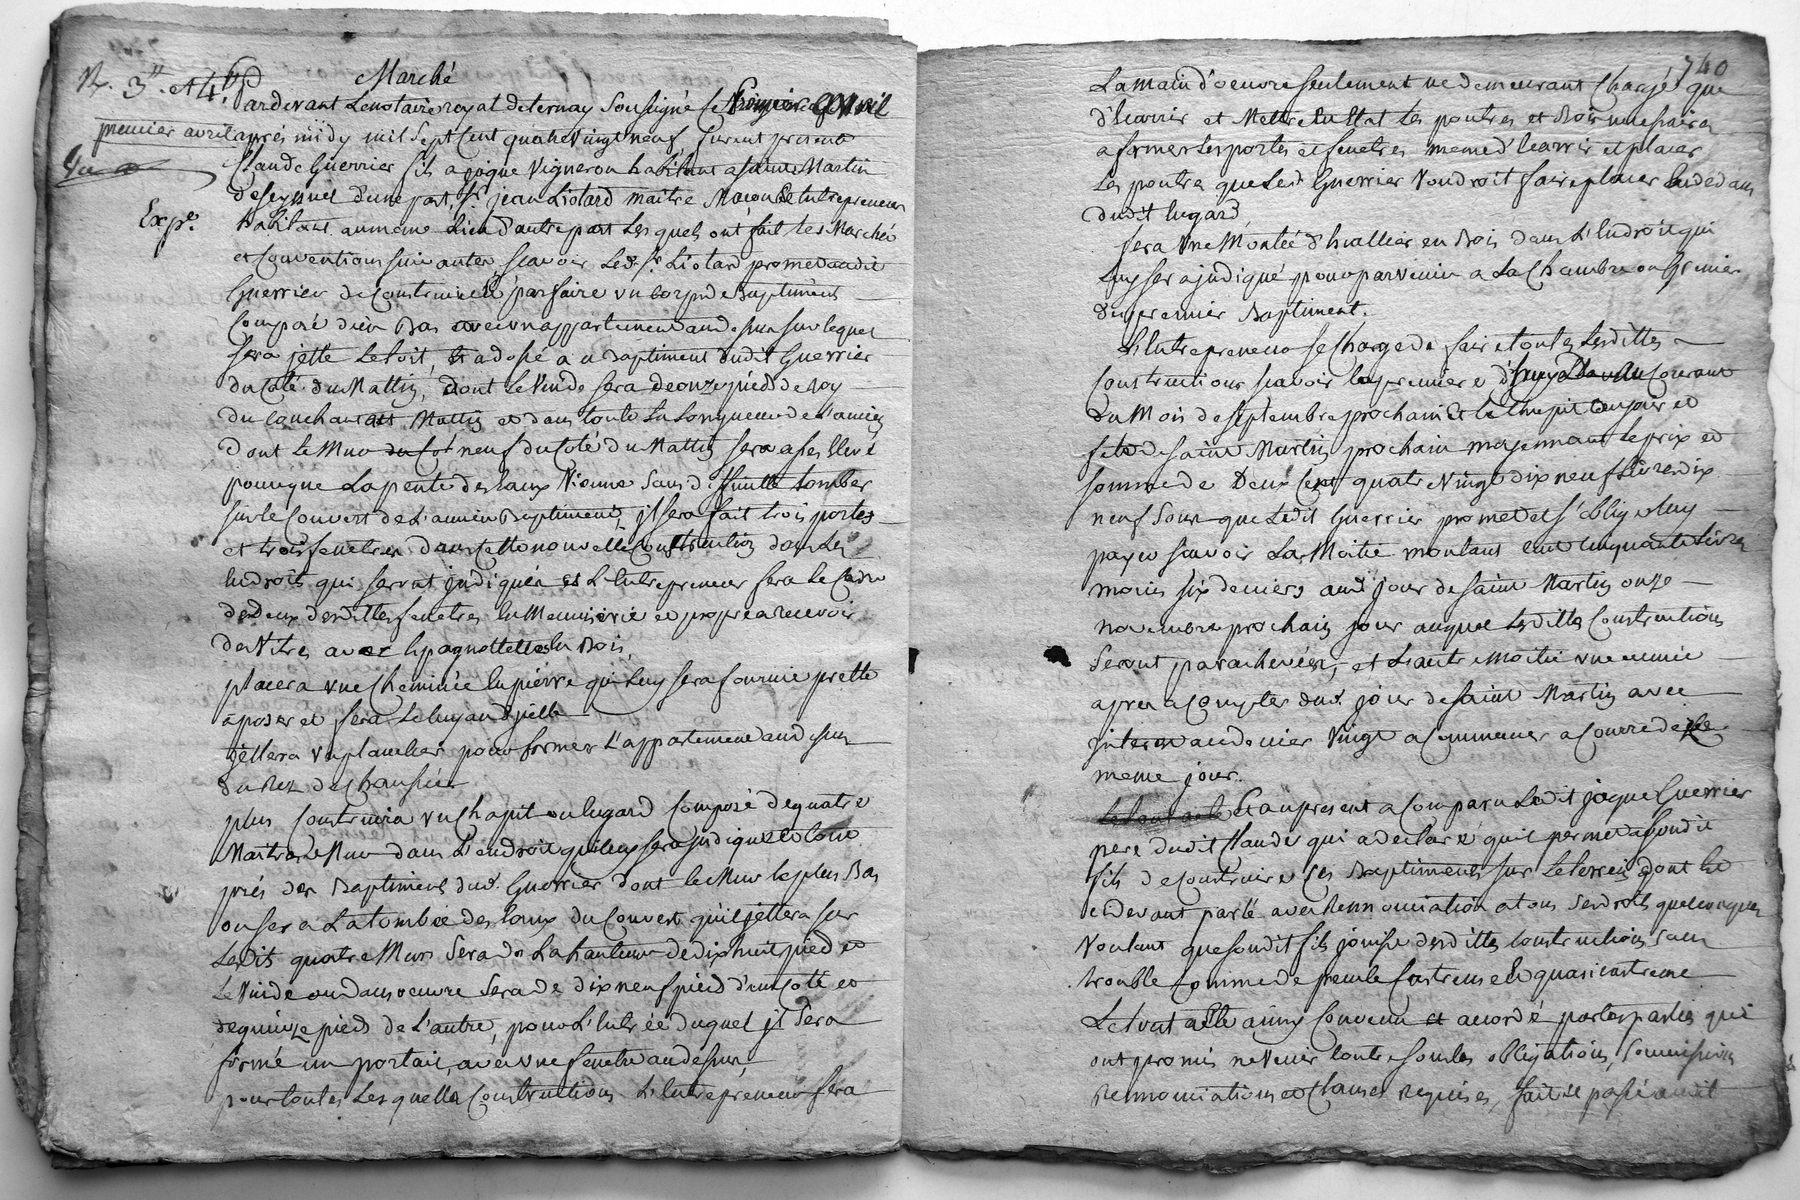 N. 3" et 4"
Marché
Pardevant Le notaire royal de ternay Soussigné Ce premier avril
premier avril après midy mil Sept Cent quatre Vingt neuf, furent present
Claude Guerrier fils a joque Vigneron habitant a Saint Martin
de Seyssuel d'une part, Sr jean Liotard maitre Macon Et Entrepreneur
Expe.
habitant au meme Lieu d'autre part Lesquels ont fait Les Marchés
et Conventions Suivantes, Scavoir Led. Sr Liotard promet audit
Guerrier de Construire Et parfaire un Corps de Baptiment
Composé d'un Bas avec un appartement au dessus Sur lequel
Sera jetté Le toit, adossé a un Baptiment dudit Guerrier
du Coté du Mattin, Dont Le Vuide Sera de onze pieds de Roy
du Couchant au Mattin et dans toute La Longueur de L'ancien
dont Le Mur neuf du Coté du Mattin Sera assés Elevé
pour que La pente des Eaux Vienne Sans difficulté tomber
Sur Le Couvert de L'ancien Baptiment, jl Sera fait trois portes
et trois fenetres dans Cette nouvelle Construction dans Les
Endroits qui Seront jndiqués et L'Entrepreneur fera Le Cadre
des Deux desdittes fenetres En Menuiserie et propre a recevoir
de Vitres avec Epagnollettes En Bois,
placera une Cheminée En pierre qui Luy Sera fournie prette
a poser et fera Le tuyau d'jcelle
jettera un plancher pour former L'appartement au dessus
du Rez de Chaussée
plus Construira un Chapit ou hugard Composé de quatre
Maitres Mur dans L'endroit qui luy Sera jndiqué Et tout
prés des Baptiments dud. Guerrier dont Le Mur le plus Bas
ou Sera La tombée des Eaux du Couvert qu'il jettera Sur
Lesdits quatre Murs Sera de La hauteur de dix huit pied et
Le Vuide ou dans oeuvre Sera de dix neuf pied d'un Coté et
de quinze pieds de L'autre, pour L'Entrée duquel jl Sera
formé un portail, avec une fenetre au dessus,
pour toutes Lesquelles Constructions L'Entrepreneur fera
740
La main d'oeuvre Seulement ne demeurant Chargé que
d'Ecarrir et Mettre En Etat Les poutres et Bois necessaires
a former Les portes et fenetres meme d'Ecarrir et placer
Les poutres que Led. Guerrier Voudroit faire placer au dedans
dudit hugard
fera Une Montée d'Ecallier en Bois dans L'Endroit qui
Luy Sera jndiqué pour parvenir a La Chambre ou Grenier
du premier Baptiment.
L'Entrepreneur Se Charge de faire toutes Lesdittes
Constructions Scavoir la premiere d'jcy Courant
du Mois de Septembre prochain Et Le Chapit Au jour et
fete de Saint Martin prochain moyennant Le prix et
Somme de Deux Cent quatre Vingt dix neuf Livres dix
neuf Sous que Ledit Guerrier promet et S'oblige Luy
payer Scavoir La Moitié montant Cent Cinquante Livres
moins Six deniers aud. jour de Saint Martin onze
novembre prochain jour auquel Lesdittes Constructions
Seront parachevées, et L'autre Moitié une année
apres a Compter dud. jour de Saint Martin avec
jnteret au denier Vingt a Commencer a Courre de Ce
meme jour.
Et au present a Comparu Ledit joque Guerrier
pere dudit Claude qui a declaré qu'il permet a Sondit
fils de Construire Ces Baptiments Sur Le terrein dont Est
Cidevant parlé avec Renonciation a tous Ses droits quelconques
Voulant que Sondit fils jouisse desdittes Constructions Sans
trouble Comme de pecule Castrense Et quasi Castrense
Le tout a Eté ainsy Convenu et accordé par Les parties qui
ont promis ne Venir Contre Sous Les obligations, Soumissions
Renonciations et Clauses Requises, fait Et passé audit